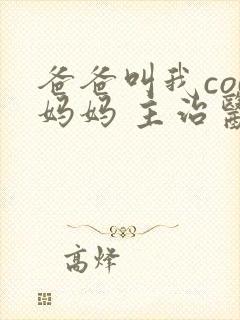 爸爸叫我co
妈妈 主治醫
高烽